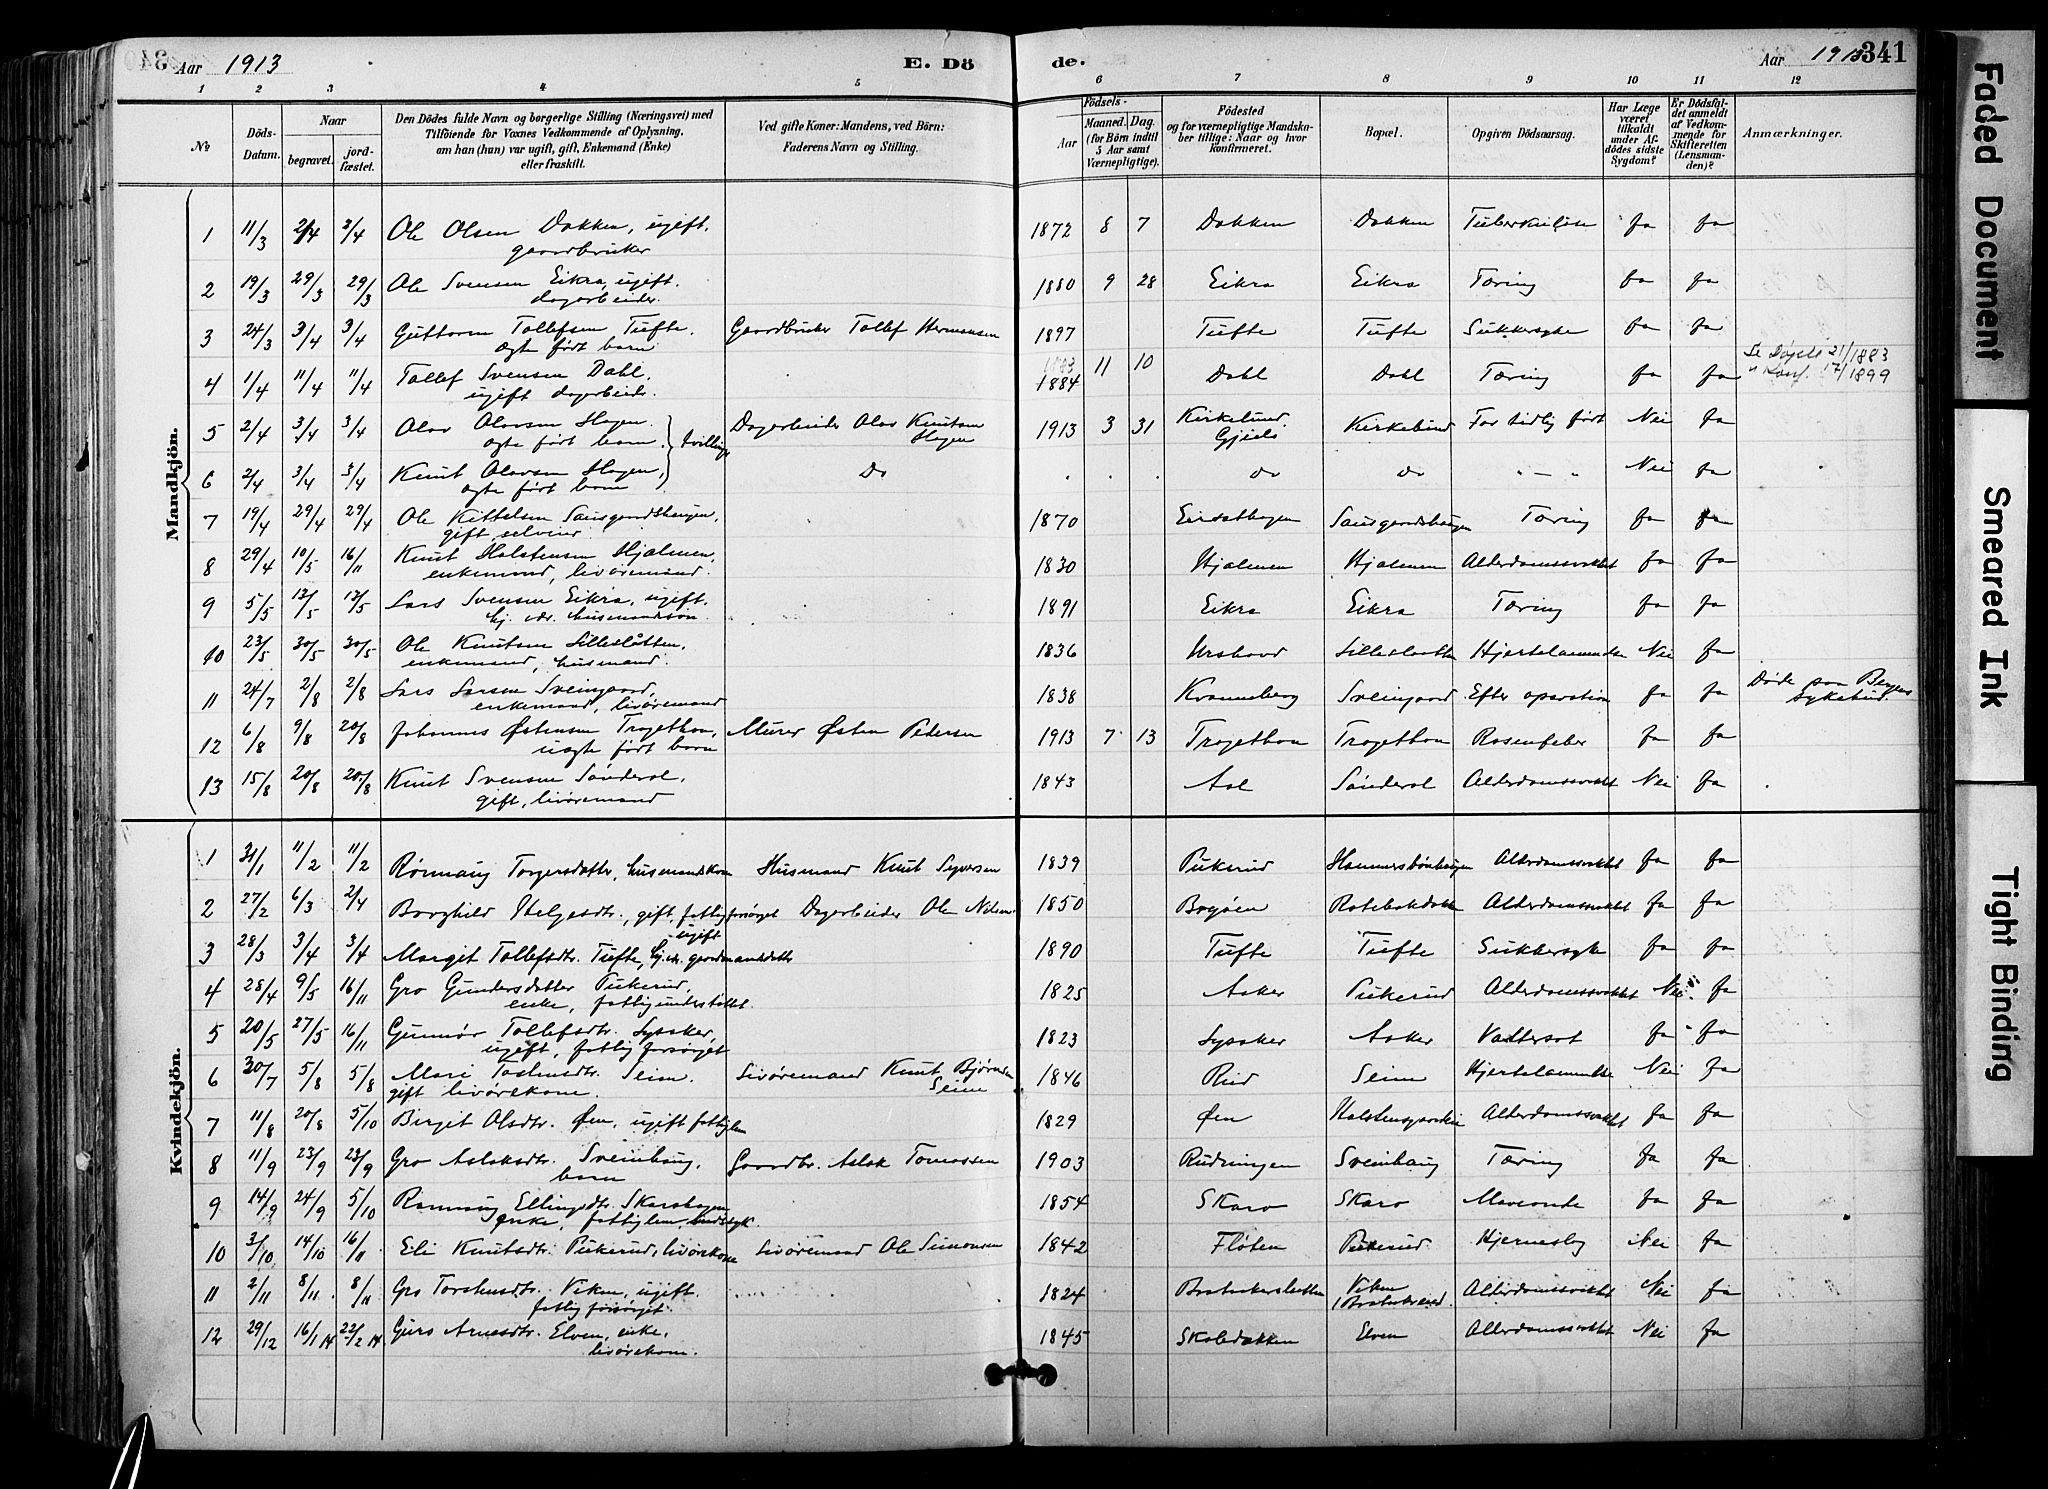 340
Aar 1913
E. Dö
de.
Aar 1913 341
1 2 3 4 5 6 7 8 9 10 11 12
№
Döds-Datum.
Naar
begravet.
jord-fæstet.
Den Dödes fulde Navn og borgerlige Stilling (Næringsvei) med
Tilföiende for Voxnes Vedkommende af Oplysning,
om han (hun) var ugift, gift, Enkemand (Enke)
eller fraskilt.
Ved gifte Koner: Mandens, ved Börn:
Faderens Navn og Stilling.
Födsels-
Aar
Maaned. Dag.
(for Börn indtil
5 Aar samt
Værnepligtige).
Födested
og for værnepligtige Mandska-
ber tillige: Naar og hvor
konfirmeret.
Bopæl.
Opgiven Dödsaarsag.
Har Læge
været
tilkaldt
under Af-
dödes sidste
Sygdom?
Er Dödsfal-
det anmeldt
af Vedkom-
mende for
Skifteretten
(Lensman-
den)?
Anmærkninger.
Mandkjön.
1 11/3 2/4 3/4 Ole Olsen Dokken, ugift, 1872 8 7 Dokken Dokken Tuberkulose ja ja
gaardbruker
2 19/3 29/3 29/3 Ole Svensen Eikra, ugift. 1880 9 28 Eikra Eikra Tæring ja ja
dagarbeider.
3 24/3 3/4 3/4 Guttorm Tollefsen Tufte. Gaardbruker Tollef Hermansen 1897 Tufte Tufte Sukkersyke ja ja
ægte født barn
4 1/4 11/4 11/4 Tollef Svensen Dahl, 1883 1884 11 10 Dahl Dahl Tæring ja ja Se Døpels 21/1883
ugift dagarbeider. " Konf. 17/1899
5 2/4 3/4 3/4 Olav Olavsen Hagen. Dagarbeider Olav Knutsen 1913 3 31 Kirkelund For tidlig født Nei ja
ægte født barn tvillinge Hagen Gjeilo Kirkelund
6 2/4 3/4 3/4 Knut Olavsen Hagen, Do do do " — " Nei ja
ægte født barn
7 19/4 29/4 29/4 Ole Kittelsen Sausgaardshaugen, 1870 Sausgaardshaugen Tæring ja ja
gift, selveier
8 29/4 10/5 16/11 Knut Holstensen Hjalmen, 1830 Hjalmen Hjalmen Alderdomssvakhet ja ja
enkemand, livøremand.
9 5/5 13/5 13/5 Lars Svensen Eikra, ugift. 1891 Eikra Eikra Tæring ja ja
hj. v. husmandssøn
10 23/5 30/5 30/5 Ole Knutsen Lilleslåtten, 1836 Urshovd Lilleslaatten Hjertelammelse Nei ja
enkemand, husmand.
11 24/7 2/8 2/8 Lars Larsen Sveingaard, 1838 Kvanneberg Sveingaard Efter operation ja ja Døde paa Bergens
enkemand, livøremand Sykehus.
12 6/8 9/8 20/8 Johannes Østensen Trogethon, Murer Østen Pedersen 1913 7 13 Trogethon Trogethon Rosenfeber ja ja
uægte født barn
13 15/8 20/8 20/8 Knut Svensen Sønderol, 1843 Aal Sønderol Alderdomssvakhet Nei ja
gift, livøremand
Kvindekjön.
1 31/1 11/2 11/2 Rønnaug Torgersdatter, husmandskone Husmand Knut Syversen 1839 Pukerud Alderdomssvakhet ja ja
2 27/2 6/3 2/4 Borghild Helgesdtr., gift, fattigforsørget Dagarbeider Ole Nilsen 1850 Bøgøen Alderdomssvakhet ja ja
3 28/3 3/4 3/4 Margit Tollefsdtr. Tufte, ugift hj.v. gaardmandsdatter 1890 Tufte Tufte Sukkersyke ja ja
4 28/4 9/5 16/11 Gro Gundersdatter Pukerud, 1825 Aaker Pukerud Alderdomssvakhet Nei ja
enke, fattigunderstøttet.
5 20/5 27/5 16/11 Gunnør Tollefsdtr. Sysaker, 1823 Sysaker Aaker Vattersot ja ja
ugift, fattig forsørget
6 30/7 5/8 5/8 Mari Tostensdtr. Seim. Livøremand Knut Bjørnsen 1846 Rud Seim Hjertelammelse Nei ja
gift livørekone. Seim
7 11/8 20/8 5/10 Birgit Olsdtr. Øen, ugift fattiglem 1829 Øen Alderdomssvakhet ja ja
8 11/9 23/9 23/9 Gro Aslaksdtr. Sveinhaug, Gaardbr. Aslak Tomassen 1903 Rudningen Sveinhaug Tæring ja ja
barn
9 14/9 24/9 5/10 Rønnaug Ellingsdtr. Skarshagen 1854 Skaro Skaro Maveonde ja ja
enke, fattiglem, sindssyk.
10 3/10 14/10 16/11 Eli Knutsdtr. Pukerud, livørekone Livøremand Ole Simonsen 1842 Fløten Pukerud. Hjerneslag Nei ja
11 2/11 8/11 8/11 Gro Torstensdtr. Viken, ugift. 1824 Viken Alderdomssvakhet Nei ja
fattig forsørget.
12 29/12 16/1 14 22/2 14 Guro Arnesdtr. Elven, enke, 1845 Skoledokken Elven Alderdomssvakhet Nei ja
livørekone.
Faded Document
Smeared Ink
Tight Binding